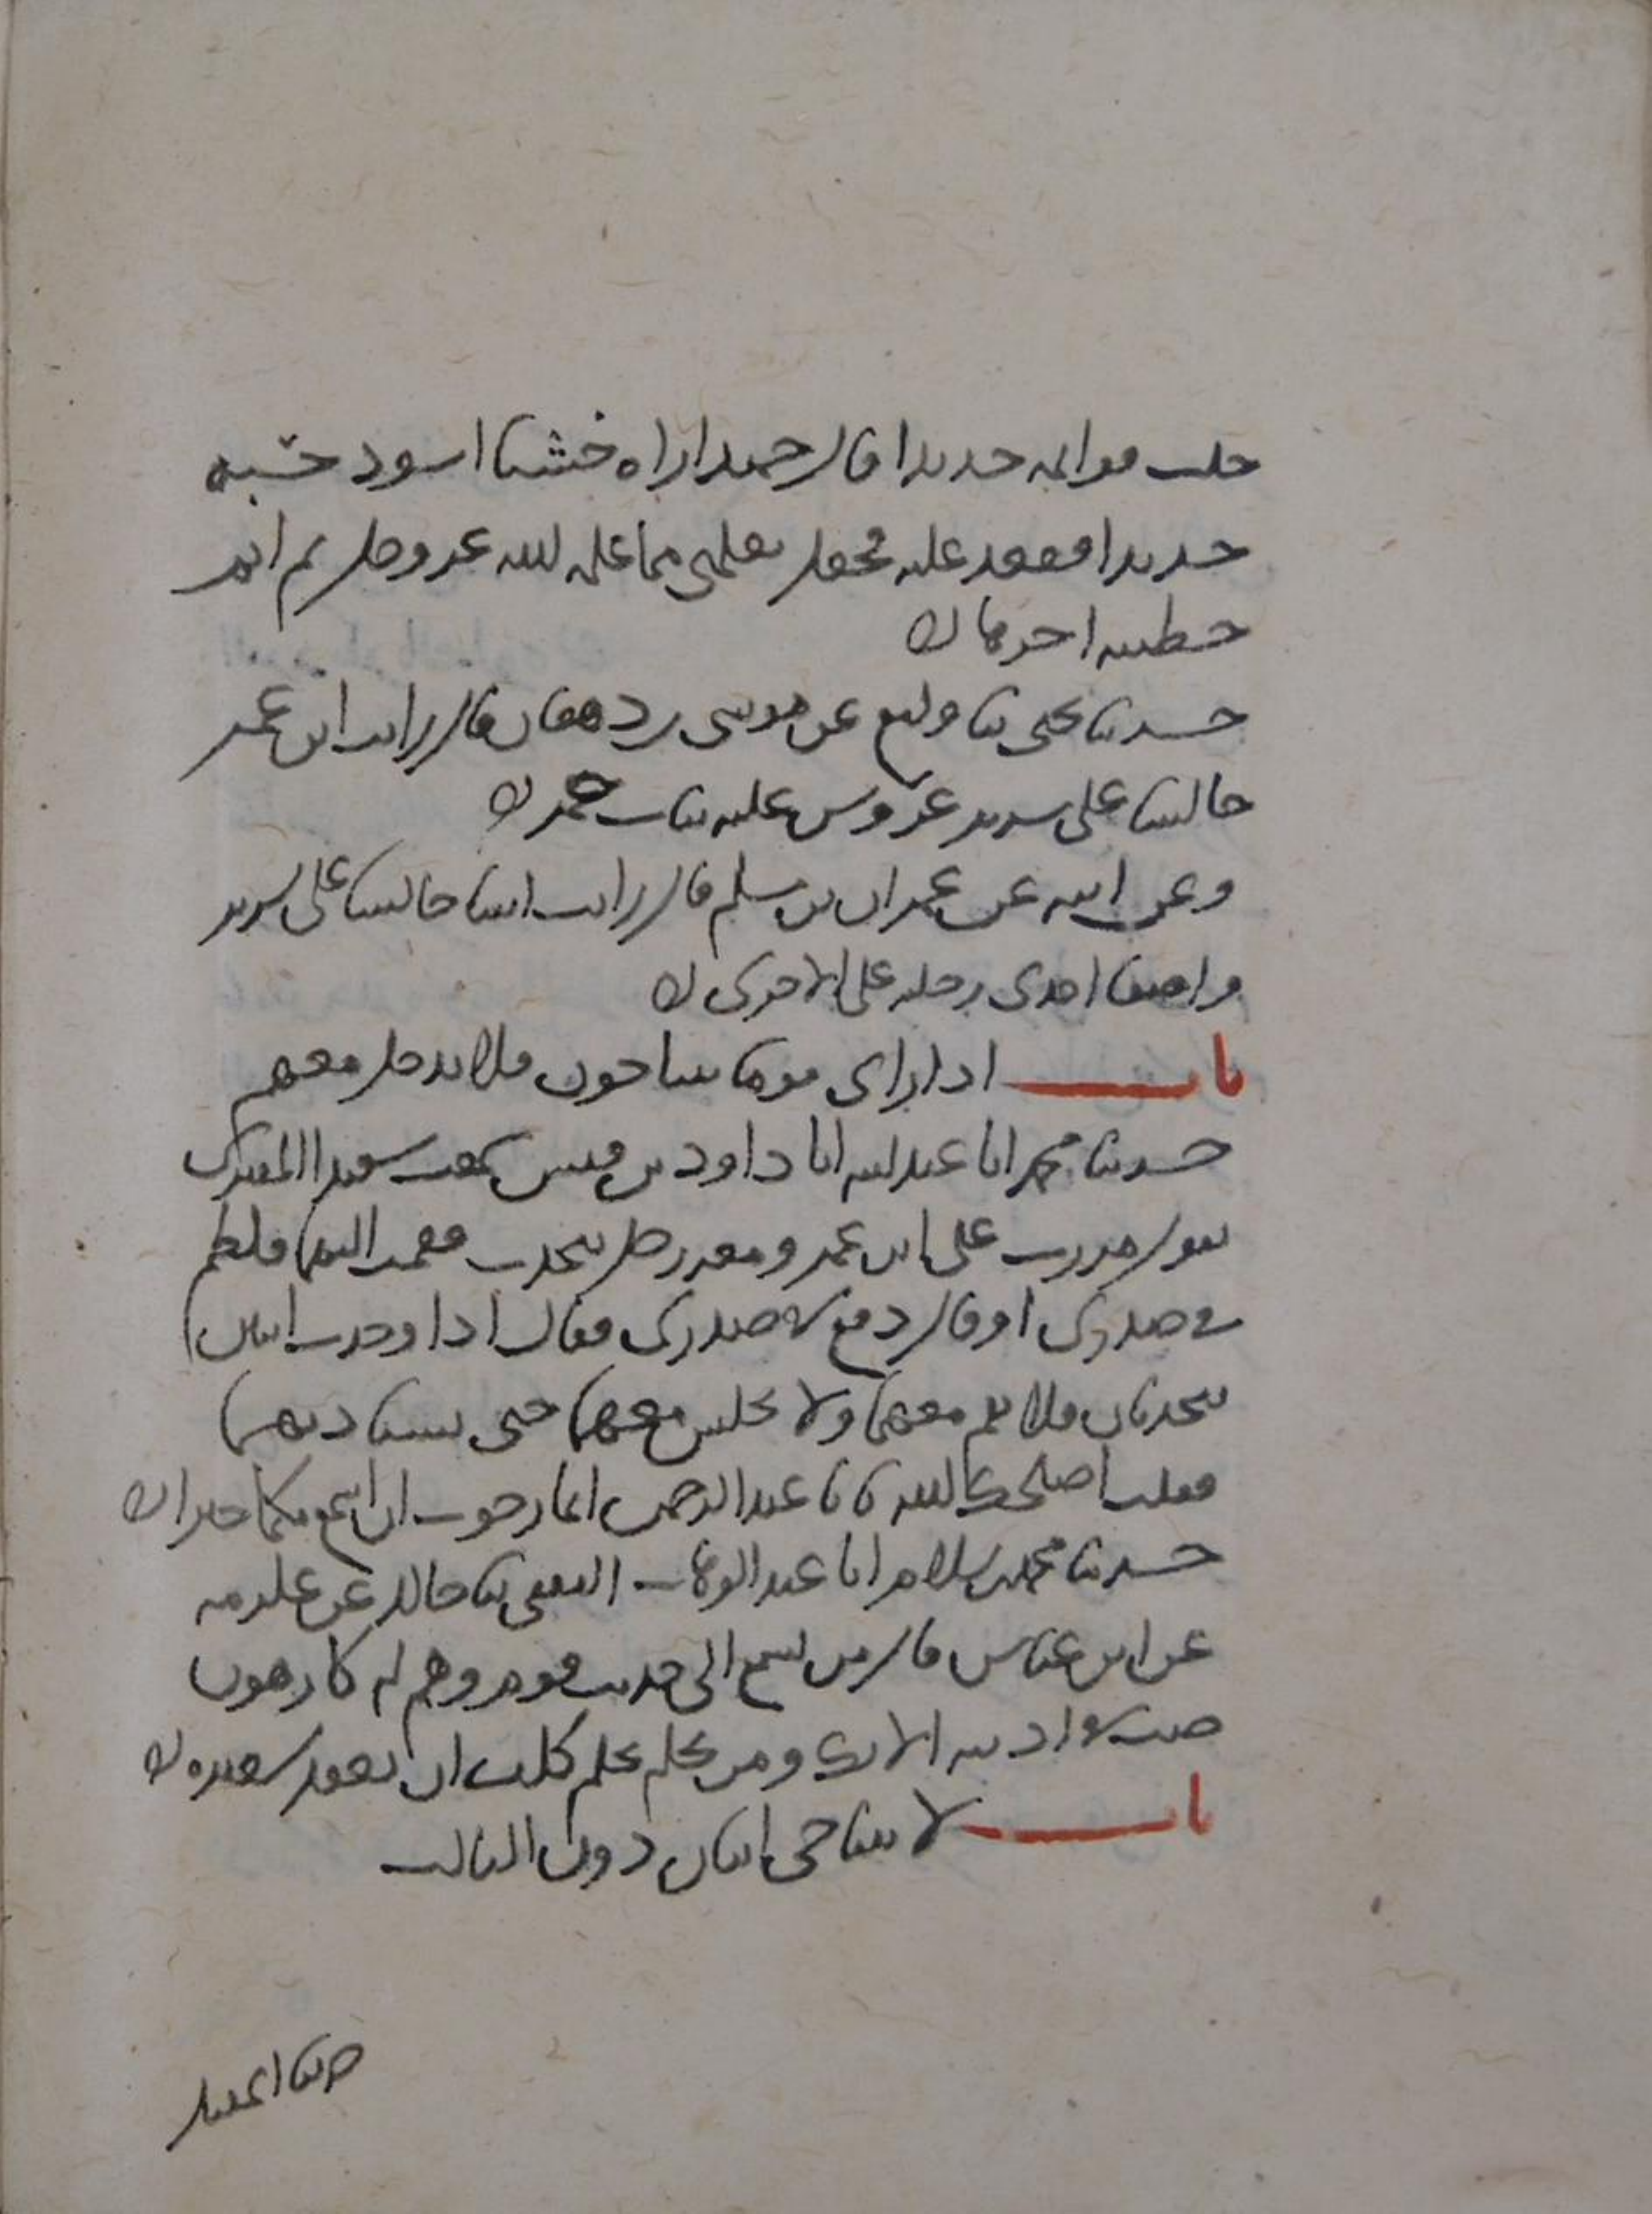 خلت قوائمه حديدا قال حميد اراه خشبا اسود حسبه
حديدا فقعد عليه فجعل يعلمني مما علمه الله عز وجل ثم اتم
خطبته اخرها
حدثنا يحيى ثنا وكيع عن موسى بن دهقان قال رايت ابن عمر
جالسا على سرير عروس عليه ثياب حمر
وعن ابيه عن عمران بن مسلم قال رايت انسا جالسا على سرير
واضعا احدى رجليه على الاخرى
باب اذا راى قوما يتناجون فلا يدخل معهم
حدثنا محمد انا عبد الله انا داود بن قيس سمعت سعيدا المقبري
يقول مررت على ابن عمر ومعه رجل يتحدث فقمت اليهما فلطم
في صدري او قال دفع في صدري فقال اذا وجدت اثنين
يتحدثان فلا تقم معهما ولا تجلس معهما حتى تستاذنهما
فقلت اصلحك الله يا با عبد الرحمن انما رجوت ان اسمع منكما خيرا
حدثنا محمد بن سلام انا عبد الوهاب الثقفي ثنا خالد عن عكرمة
عن ابن عباس قال من تسمع الى حديث قوم وهم له كارهون
صب في اذنيه الانك ومن تحلم بحلم كلف ان يعقد شعيرة
باب لا يتناجى اثنان دون الثالث
حدثنا اسمعيل